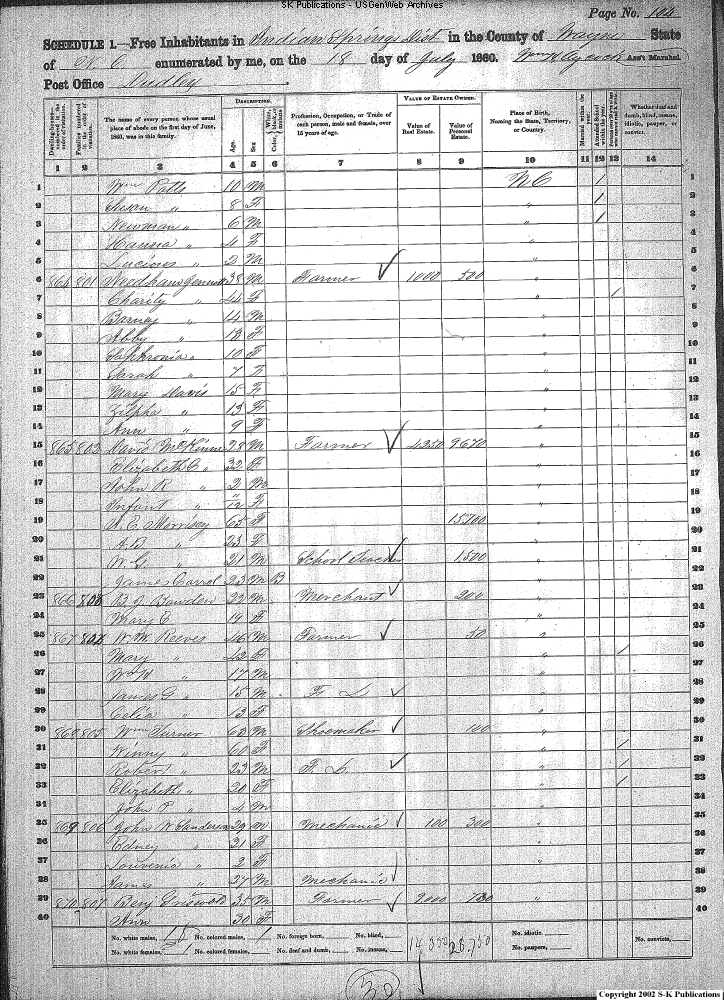 SK Publications - USGenWeb Archives
Page No. 102
SCHEDULE 1.—Free Inhabitants in Indian Springs Dist in the County of Wayne State
of N. C enumerated by me, on the 18 day of July 1860. Wm H Aycock Ass't Marshal.
Post Office Dudley
Dwelling-houses numbered in the order of visitation.
Families numbered in the order of visitation.
The name of every person whose usual place of abode on the first day of June, 1860, was in this family.
DESCRIPTION.
Age. Sex. Color,
Profession, Occupation, or Trade of each person, male and female, over 15 years of age.
VALUE OF ESTATE OWNED.
Value of Real Estate. Value of Personal Estate.
Place of Birth, Naming the State, Territory, or Country.
Married within the year.
Attended School within the year.
Whether deaf and dumb, blind, insane, idiotic, pauper, or convict.
1 2 3 4 5 6 7 8 9 10 11 12 13 14
1 Wm Potts 10 M N C / 1
2 Susan " 8 F " / 2
3 Newman " 6 M " / 3
4 " 4 F " 4
5 Lucious " 2 M " 5
6 864 801 Needham 38 M Farmer 1000 500 " 6
7 Charity " 44 F " / 7
8 Barney " 14 M " 8
9 Abby " 13 F " 9
10 " 10 F " 10
11 Sarah " 7 F " 11
12 Mary Davis 15 F " 12
13 Zilpha " 13 F " 13
14 Ann " 9 F " 14
15 865 802 David 28 M Farmer 4350 9670 " 15
16 Elizabeth C " 32 F " 16
17 John R " 2 M " 17
18 Infant " F " 18
19 Morrisey 65 F 15700 " 19
20 " 23 F " 20
21 " 21 M School Teacher 1500 " 21
22 James Carrol 23 M B " 22
23 866 803 B J Bowden 22 M Merchant 200 " 23
24 Mary E " 19 F " 24
25 867 804 W. M. Reeves 46 M Farmer 50 " 25
26 Mary " 42 F " / 26
27 Wm H " 17 M " 27
28 James G " 15 M F. L. " 28
29 Celia " 13 F " 29
30 868 805 Wm Turner 63 M Shoemaker 100 " 30
31 Winny " 60 F " / 31
32 Robert " 23 M F. L. " / 32
33 Elizabeth " 20 F " / 33
34 John P " 4 M " 34
35 869 806 John W Sanderson 29 M Mechanic 100 300 " 35
36 Edney " 21 F " 36
37 Louvenia " 2 F " 37
38 James " 27 M Mechanic " 38
39 870 807 Benj Griswold 35 M Farmer 9000 730 " 39
40 Ann " 30 F " 40
No. white males, 18 No. colored males, 1 No. foreign born, No. blind, No. idiotic,
No. white females, No. colored females, No. deaf and dumb, No. insane, No. paupers, No. convicts,
28,750
Copyright 2002 S-K Publications